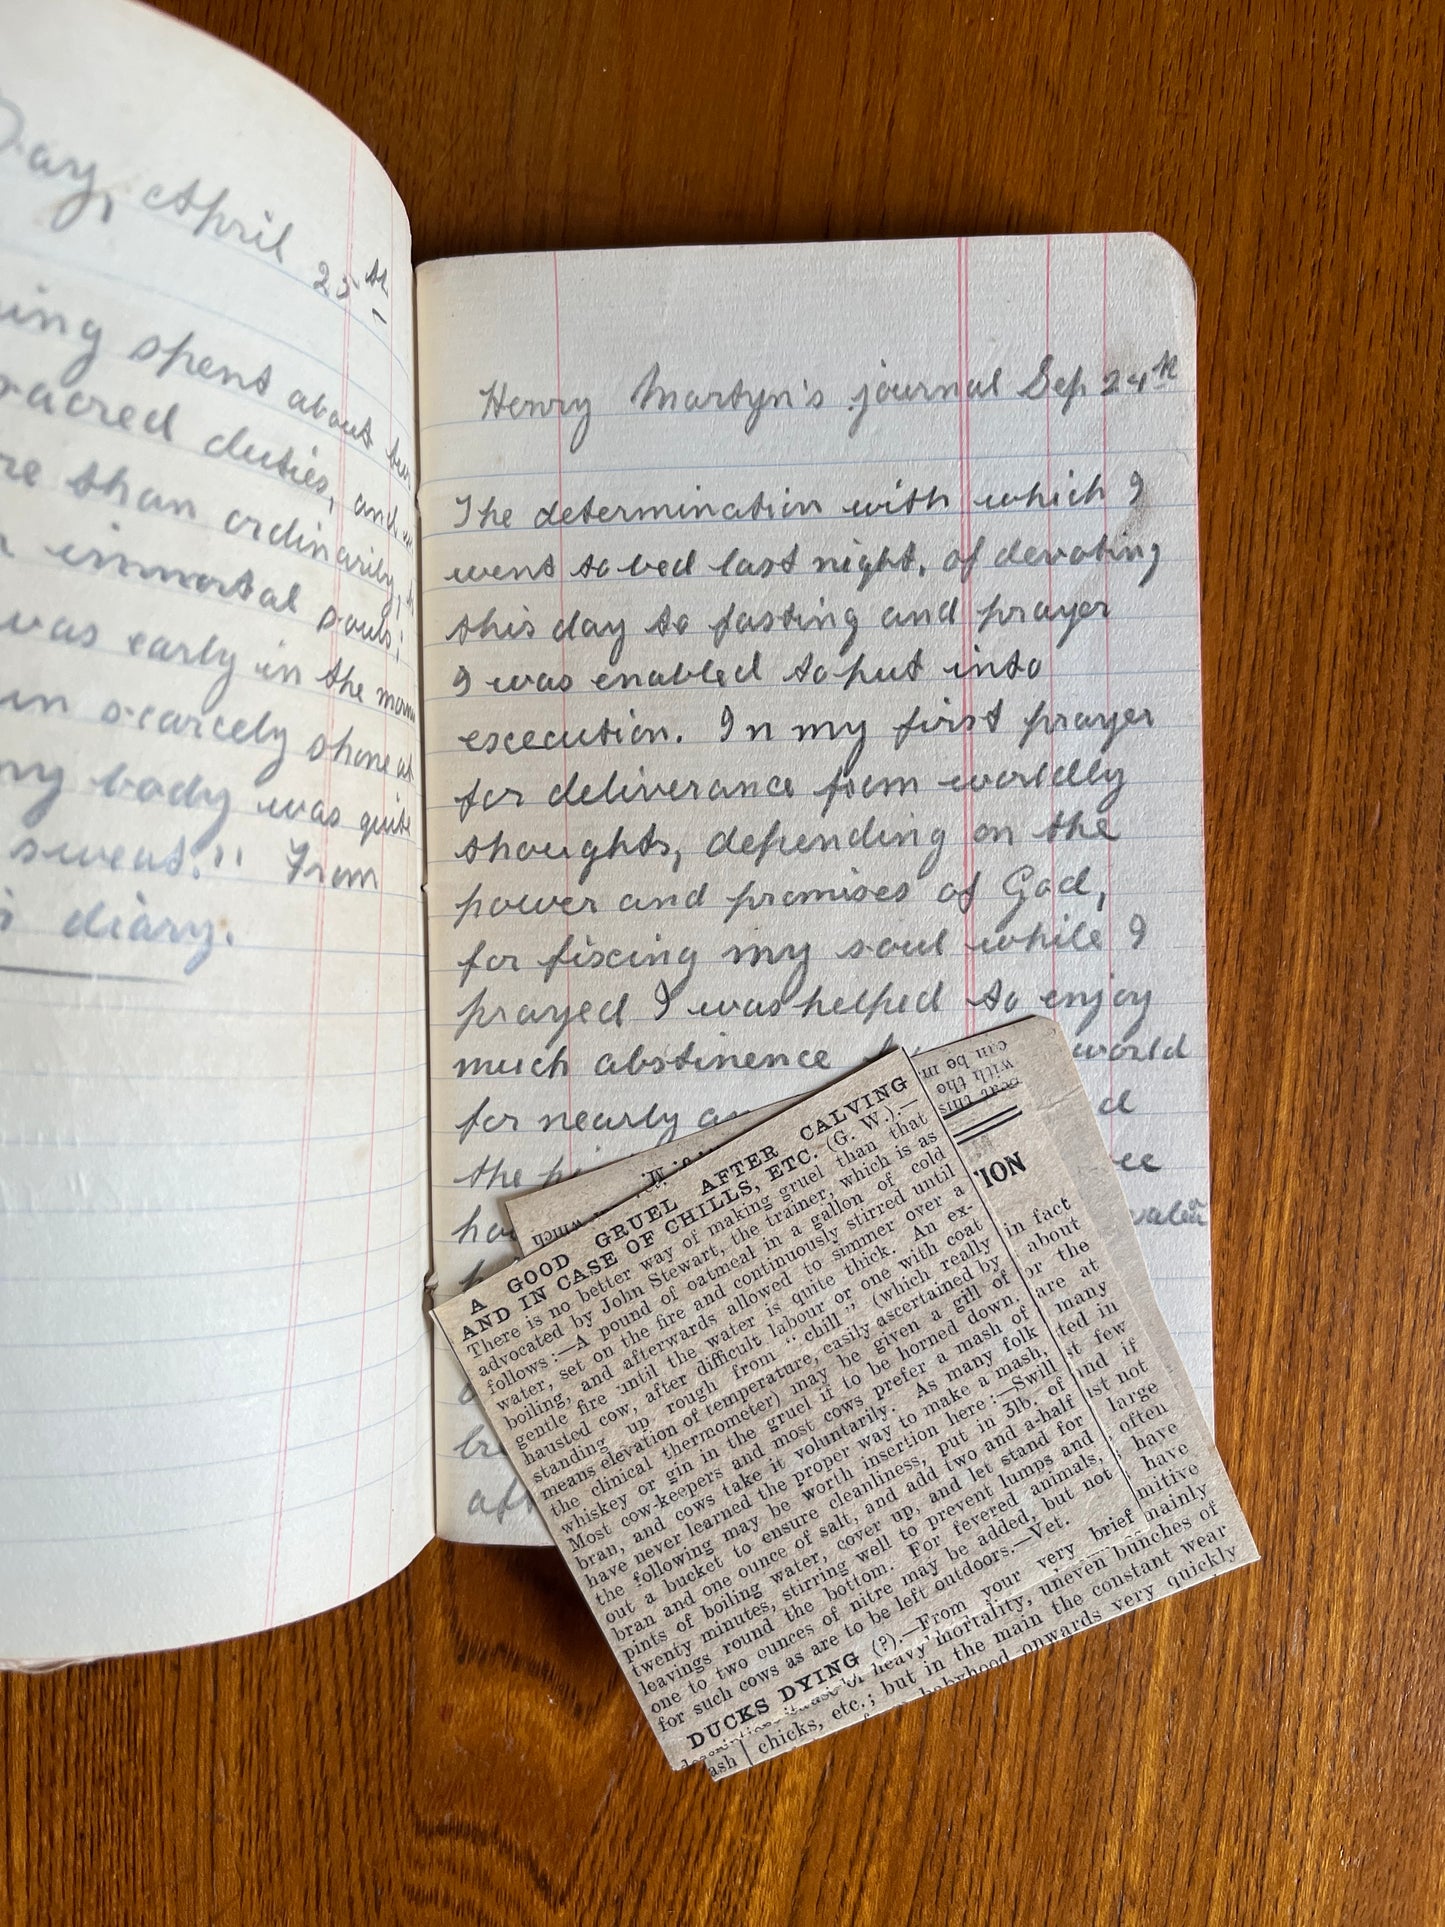 Day, April 25th
ing spent about
sacred duties, and
re than ordinarily,
immortal souls;
was early in the
scarcely shone at
my body was quite
sweat." From
diary.
Henry Martyn's journal Sep 24th
The determination with which I
went to bed last night, of devoting
this day to fasting and prayer
I was enabled to put into
execution. In my first prayer
for deliverance from worldly
thoughts, depending on the
power and promises of God,
for fixing my soul while I
prayed I was helped to enjoy
much abstinence world
for nearly
the
can be in
with the
A GOOD GRUEL AFTER CALVING
AND IN CASE OF CHILLS, ETC. (G. W.).—
There is no better way of making gruel than that
advocated by John Stewart, the trainer, which is as
follows:—A pound of oatmeal in a gallon of cold
water, set on the fire and continuously stirred until
boiling, and afterwards allowed to simmer over a
gentle fire until the water is quite thick. An ex-
hausted cow, after difficult labour or one with coat
standing up rough from "chill" (which really
means elevation of temperature, easily ascertained by
the clinical thermometer) may be given a gill of
whiskey or gin in the gruel if to be horned down.
Most cow-keepers and most cows prefer a mash of
bran, and cows take it voluntarily. As many folk
have never learned the proper way to make a mash,
the following may be worth insertion here:—Swill
out a bucket to ensure cleanliness, put in 3lb. of
bran and one ounce of salt, and add two and a-half
pints of boiling water, cover up, and let stand for
twenty minutes, stirring well to prevent lumps and
leavings round the bottom. For fevered animals,
one to two ounces of nitre may be added, but not
for such cows as are to be left outdoors.—Vet.
DUCKS DYING (?).—From your very brief
heavy mortality, uneven bunches of
chicks, etc.; but in the main the constant wear
babyhood onwards very quickly
ash
TION
in fact
about
or the
are at
many
ted in
st few
and if
ust not
large
often
have
have
mitive
mainly